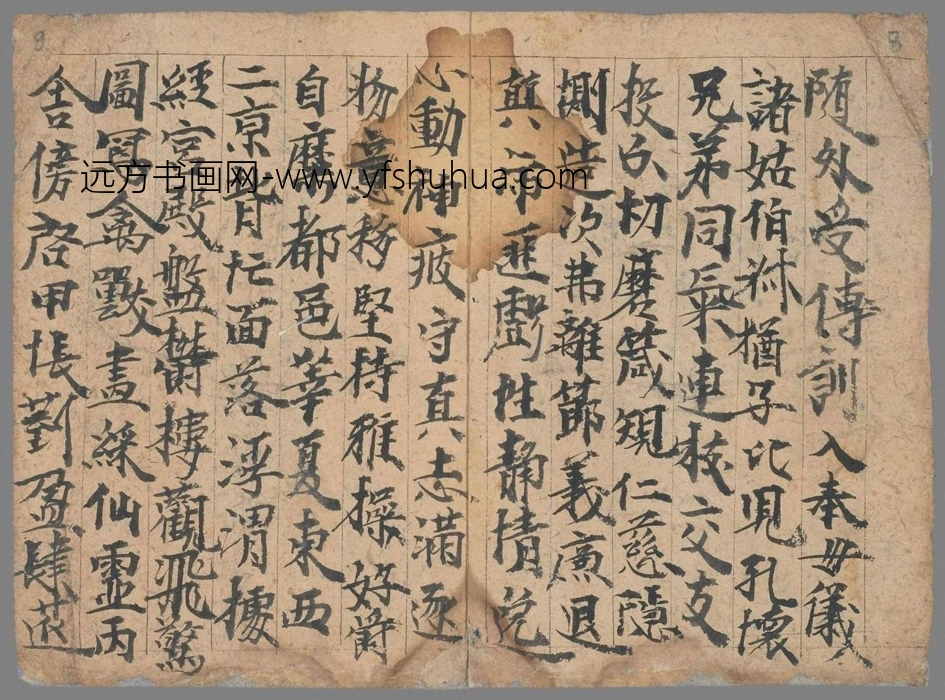 8
随外受傳訓入奉母儀
諸姑伯叔猶子比兒孔壞
兄弟同氣連枝交支
投分切磨箴規仁慈隱
惻造次弗離節義廉退
顛沛匪虧性静情逸
心動神疲守真志滿逐
物意移堅持雅操好爵
自縻都邑華夏東西
二京背芒面落浮渭據
經宮殿盤欝樓觀飛驚
圖寫禽獸畫綵仙靈丙
舍傍啓甲帳對盈肆筵
9
远方书画网-www.yfshuhua.com